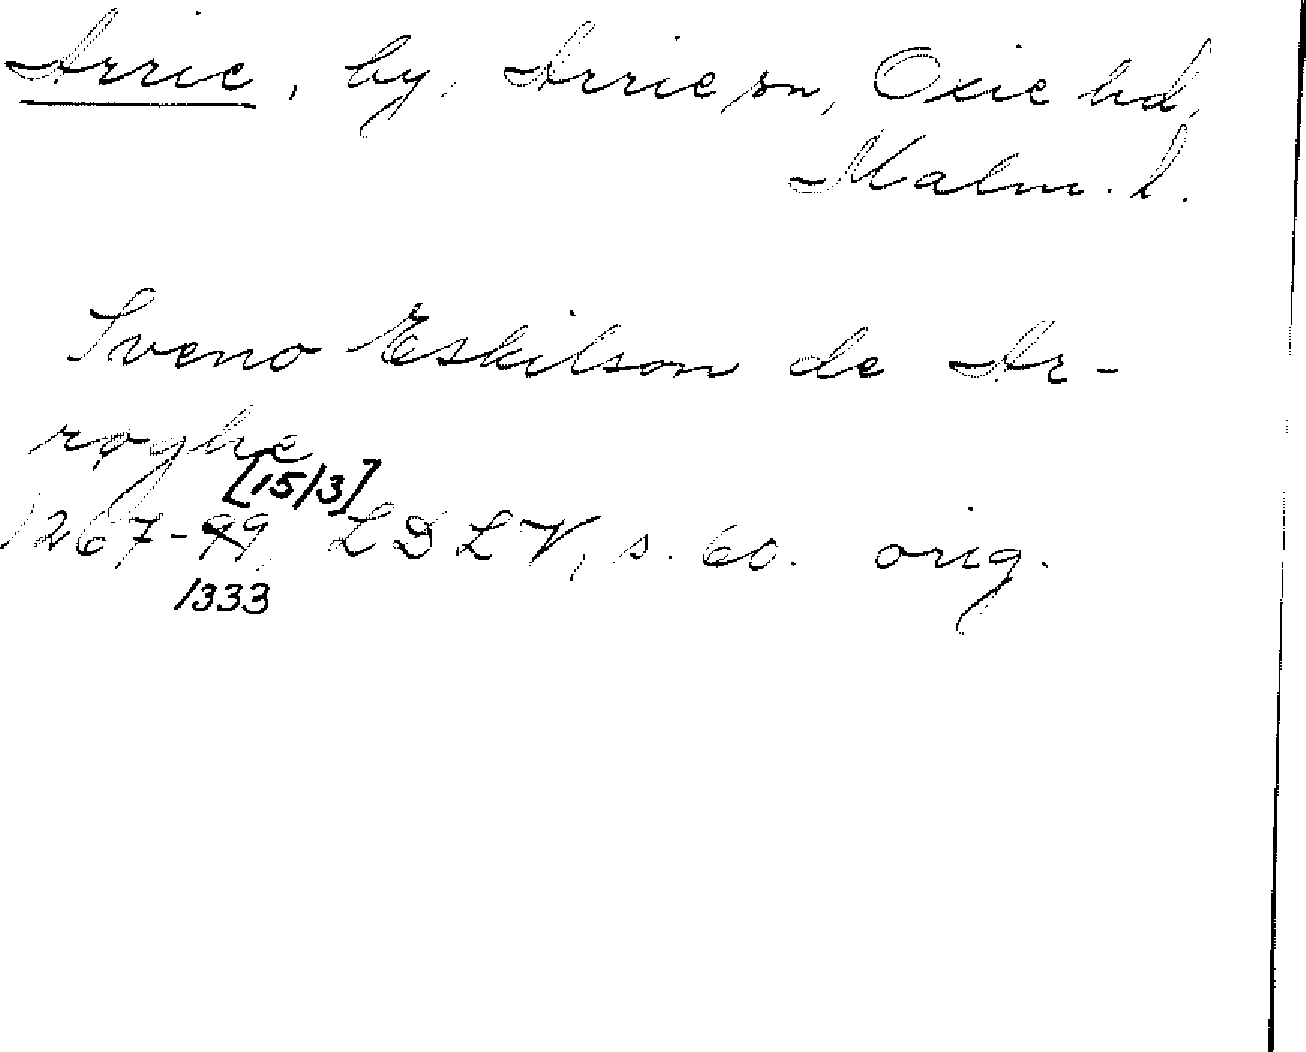 Arrie, by, Arrie sn, Oxie hd,
Malm. l.
Sveno Eskilson de Ar-
røghe
[15/3]
1267-99, LDLV, s. 60. orig.
1333